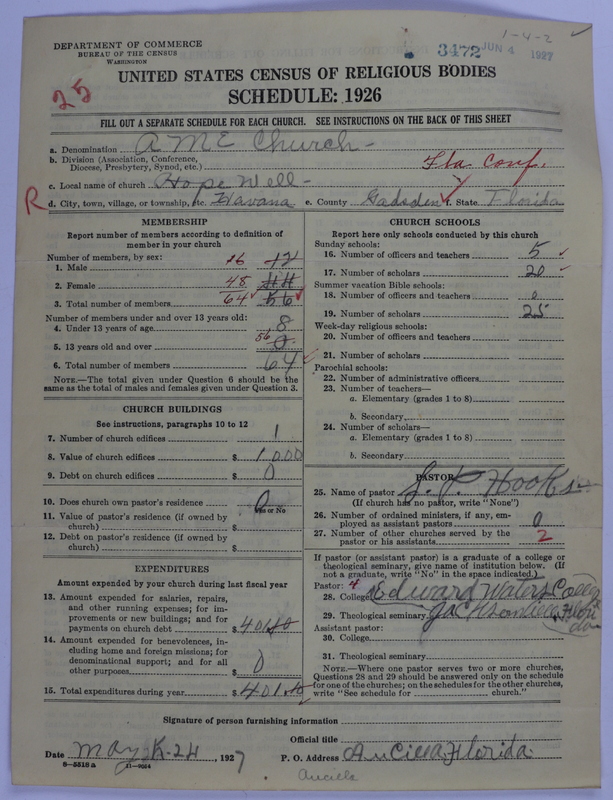 1-4-2
DEPARTMENT OF COMMERCE
BUREAU OF THE CENSUS
WASHINGTON
3472 JUN 4 1927
UNITED STATES CENSUS OF RELIGIOUS BODIES
25
SCHEDULE: 1926
FILL OUT A SEPARATE SCHEDULE FOR EACH CHURCH. SEE INSTRUCTIONS ON THE BACK OF THIS SHEET
a. Denomination A M E Church
b. Division (Association, Conference, Diocese, Presbytery, Synod, etc.) Fla Conf.
c. Local name of church Hope Well
R d. City, town, village, or township, etc. Havana e. County Gadsden f. State Florida
MEMBERSHIP
Report number of members according to definition of
member in your church
Number of members, by sex:
1. Male 16 12
2. Female 48 44
3. Total number of members 64 56
Number of members under and over 13 years old:
4. Under 13 years of age 8
5. 13 years old and over 56 0
6. Total number of members 64
NOTE.—The total given under Question 6 should be the
same as the total of males and females given under Question 3.
CHURCH BUILDINGS
See instructions, paragraphs 10 to 12
7. Number of church edifices 1
8. Value of church edifices $ 1000
9. Debt on church edifices $ 0
10. Does church own pastor's residence 0
Yes or No
11. Value of pastor's residence (if owned by
church) $
12. Debt on pastor's residence (if owned by
church) $
EXPENDITURES
Amount expended by your church during last fiscal year
13. Amount expended for salaries, repairs,
and other running expenses; for im-
provements or new buildings; and for
payments on church debt $ 401.40
14. Amount expended for benevolences, in-
cluding home and foreign missions; for
denominational support; and for all
other purposes $ 0
15. Total expenditures during year $ 401.40
CHURCH SCHOOLS
Report here only schools conducted by this church
Sunday schools:
16. Number of officers and teachers 5
17. Number of scholars 20
Summer vacation Bible schools:
18. Number of officers and teachers 0
19. Number of scholars 25
Week-day religious schools:
20. Number of officers and teachers
21. Number of scholars
Parochial schools:
22. Number of administrative officers
23. Number of teachers—
a. Elementary (grades 1 to 8)
b. Secondary
24. Number of scholars—
a. Elementary (grades 1 to 8)
b. Secondary
PASTOR
25. Name of pastor Hooks
(If church has no pastor, write "None")
26. Number of ordained ministers, if any, em-
ployed as assistant pastors 0
27. Number of other churches served by the
pastor or his assistants 2
If pastor (or assistant pastor) is a graduate of a college or
theological seminary, give name of institution below. (If
not a graduate, write "No" in the space indicated.)
Pastor: 4
28. College Edward Waters College
29. Theological seminary Jacksonville, Florida
Assistant pastor:
30. College
31. Theological seminary
NOTE.—Where one pastor serves two or more churches,
Questions 28 and 29 should be answered only on the schedule
for one of the churches; on the schedules for the other churches,
write "See schedule for church."
Signature of person furnishing information
Official title
Date May 24 1927 P. O. Address Aucilla Florida
8—5518 a
Aucilla